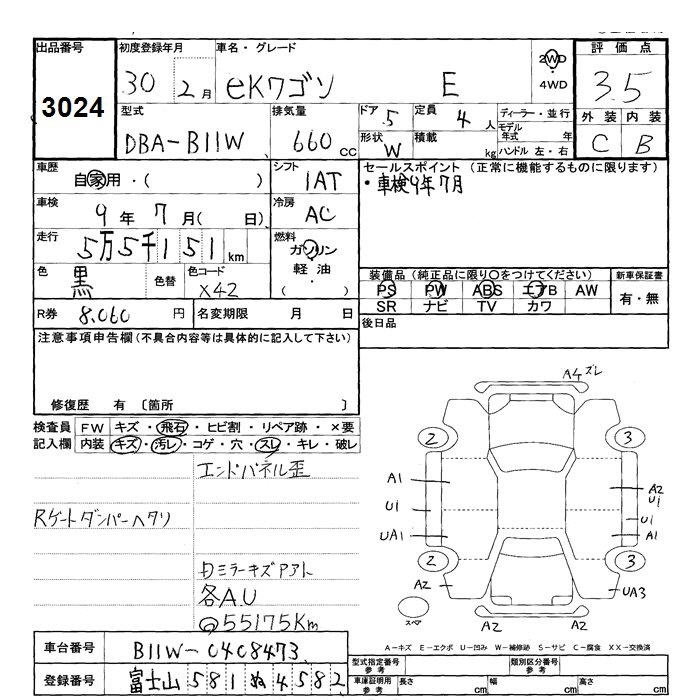 出品番号 初度登録年月 車名・グレード 2WD 4WD 評価点
3024 30 2月 eKワゴン E 3.5
型式 排気量 ドア 5 定員 4人 ディーラー・並行 外装 内装
DBA-B11W 660cc 形状 W 積載 kg モデル年式 年 ハンドル 左・右 C B
車歴 自家用・( ) シフト IAT セールスポイント(正常に機能するものに限ります)
・車検9年7月
車検 9年7月( 日) 冷房 AC
走行 5万5千151km 燃料 ガソリン・軽油・( )
色 黒 色替 色コード X42
装備品(純正品に限り○をつけてください) 新車保証書
PS PW ABS エアB AW 有・無
SR ナビ TV カワ
R券 8,060円 名変期限 月 日 後日品
注意事項申告欄(不具合内容等は具体的に記入して下さい)
修復歴 有〔箇所 〕
検査員 FW キズ・飛石・ヒビ割・リペア跡・×要
記入欄 内装 キズ・汚レ・コゲ・穴・スレ・キレ・破レ
エンドパネル歪
Rゲートダンパーヘタリ
ミラーキズアアト
各A.U
@55175Km
A4 ズレ
2 3
A1 A2
U1
U1 U1
UA1 A1
2 3
A2 UA3
スペア A2 A2
A-キズ E-エクボ U-凹み W-補修跡 S-サビ C-腐食 XX-交換済
車台番号 B11W-0408473
登録番号 富士山 581 ぬ 4582
型式指定番号 参考 類別区分番号 参考
車庫証明用 参考 長さ cm 幅 cm 高さ cm